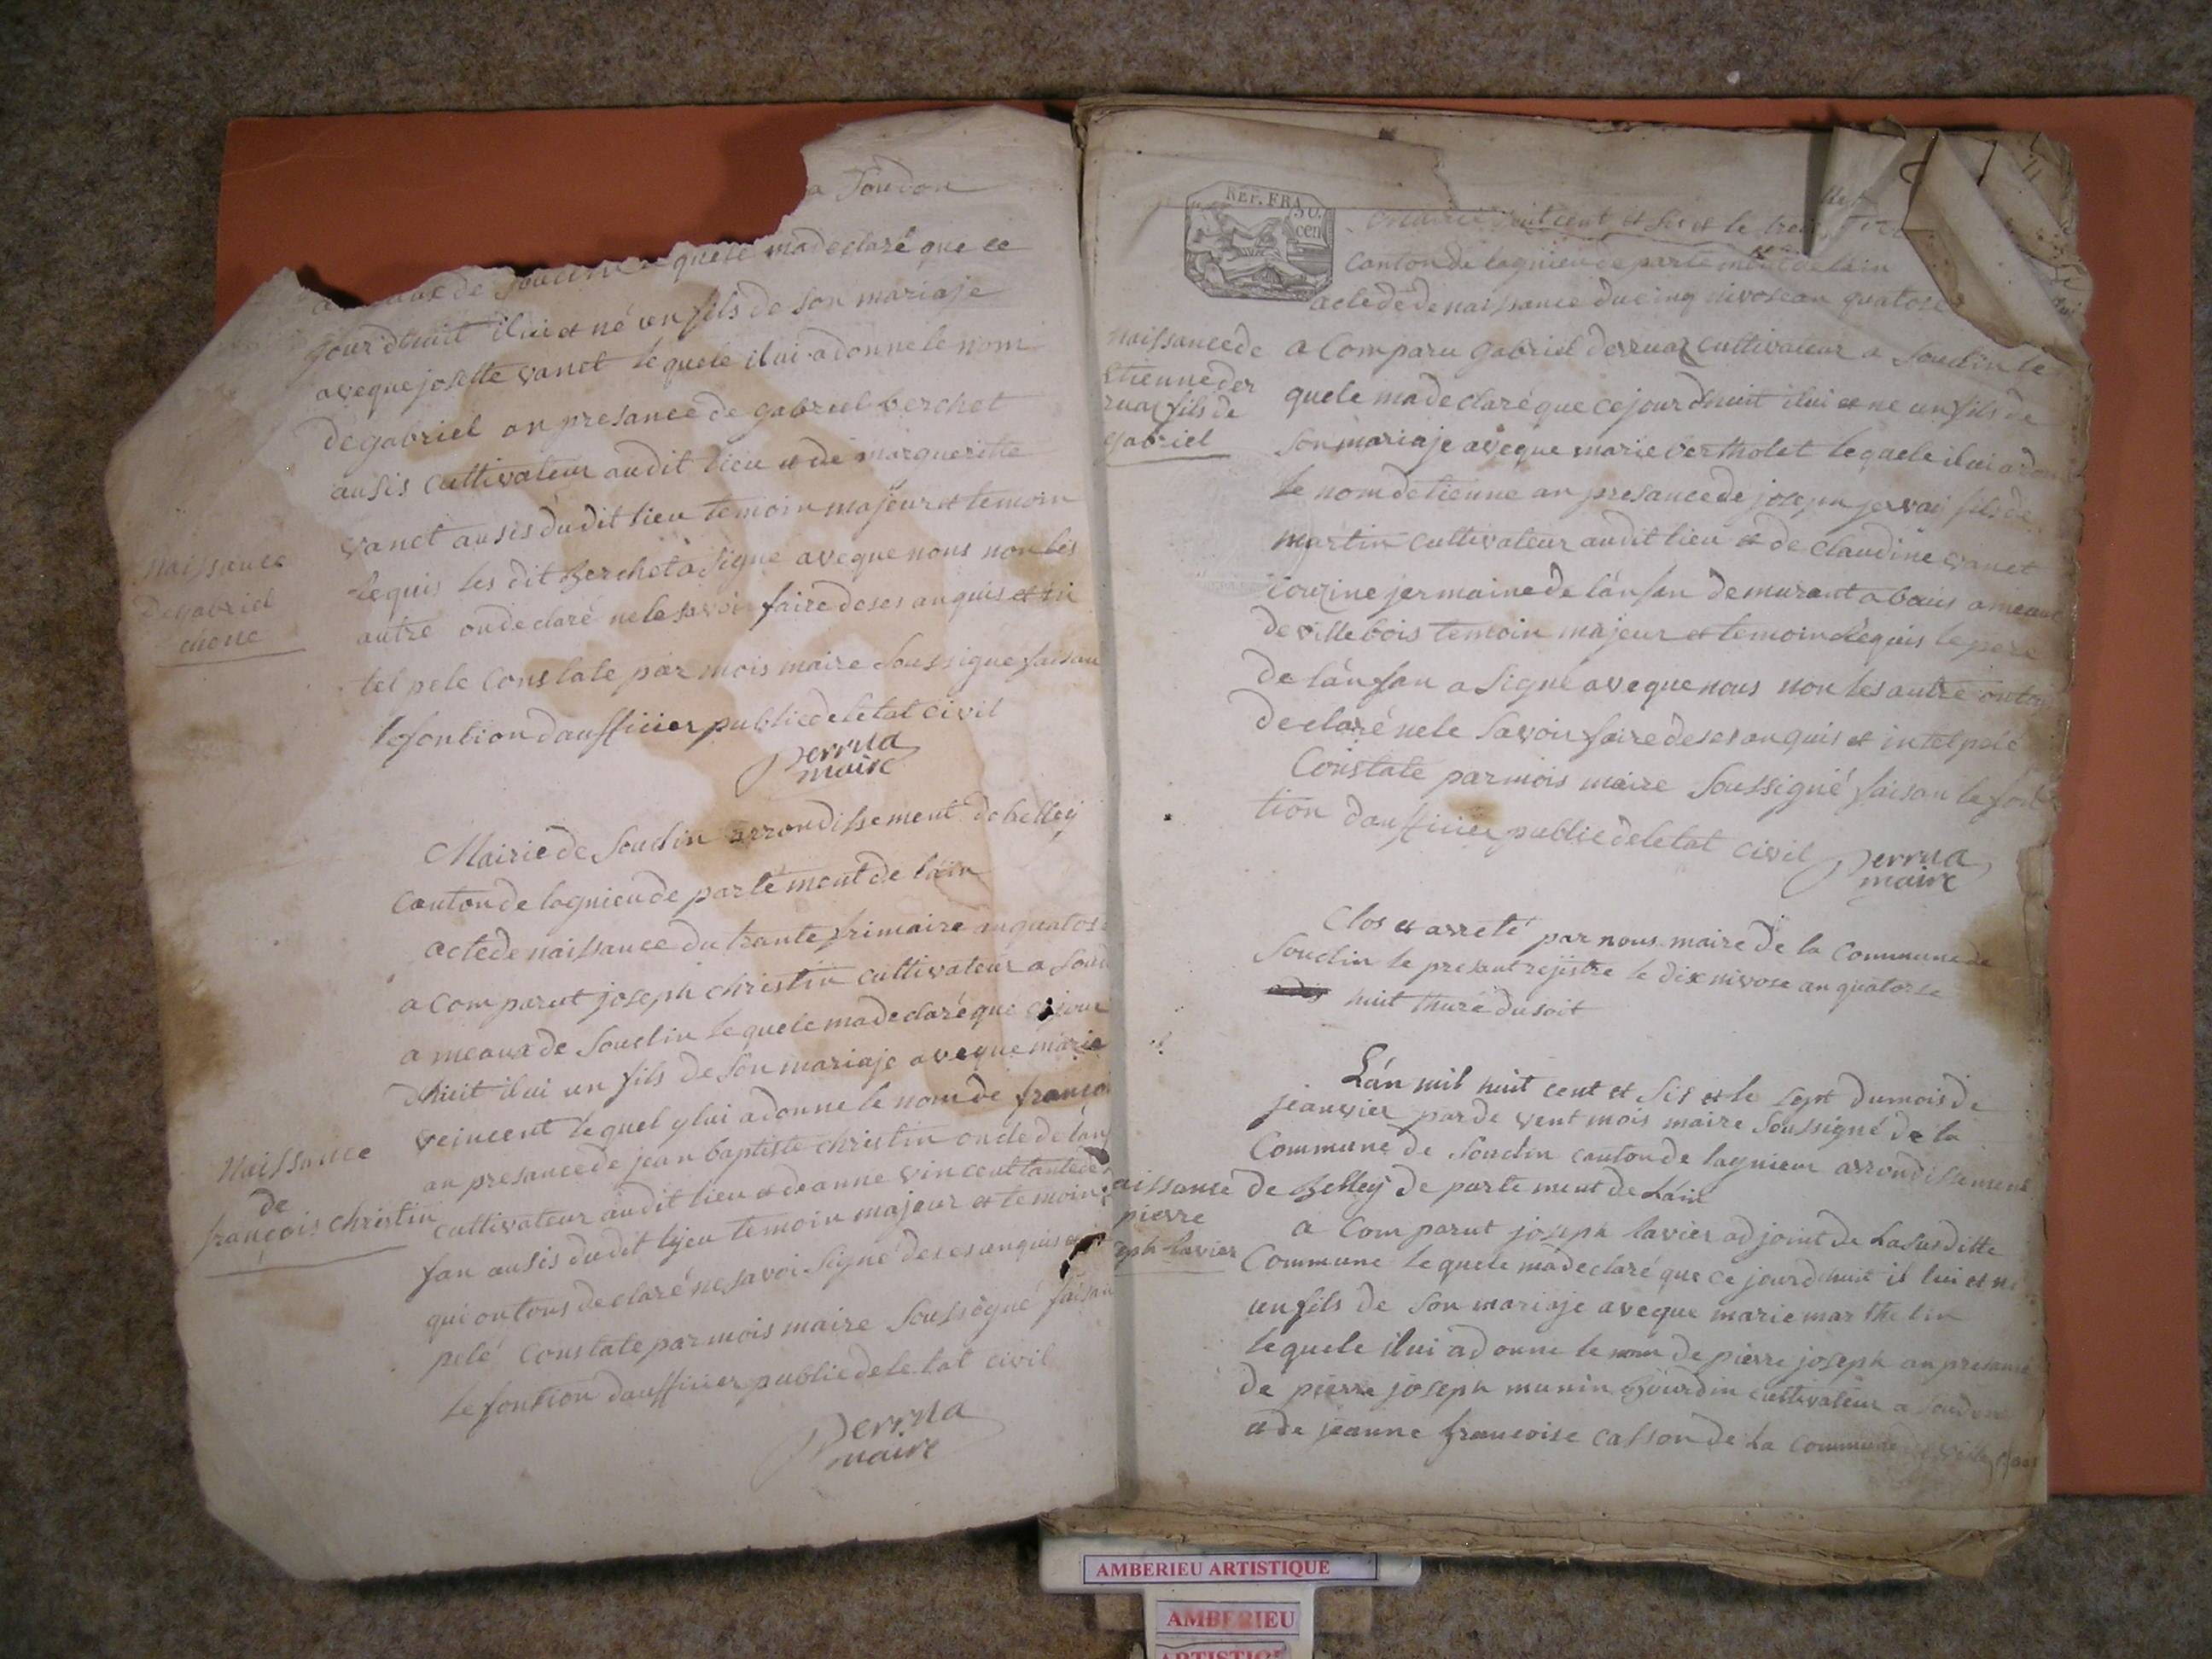 a Soudon
de Soudin lequele madeclaré que ce
jourdhuit ilui et né un fils de son mariaje
aveque josette vanet lequele ilui a donne le nom
de gabriel an presance de gabriel berchet
ausis cultivateur audit lieu et de margueritte
vanet ausis dudit lieu temoin majeur et temoin
requis les dit Berchet a signe aveque nous non les
autre on declaré ne le savoir faire de ses anquis et in
tel pele Constate par mois maire Soussigne faisan
le fontion daufficier public de letat civil
Perrua
maire
Naissance
de gabriel
chene
Mairie de Soudin arrondissement de belley
Canton de lagnieu departement de láin
acte de naissance du trante frimaire an quatos
a Comparut joseph christin cultivateur a Soud
ameaux de Soudin lequele madeclaré que ce jour
dhuit ilui un fils de son mariaje aveque marie
veincent lequel y lui a donne le nom de françoi
an presance de jean baptiste christin oncle de lan
cultivateur audit lieu et de anne vincent tante de
fan ausis dudit lyeu temoin majeur et temoin
qui on tous declaré ne savoi signe de ses anquis
pelé Constate par mois maire Soussigné faisan
le fontion daufficier public de letat civil
Perrua
maire
Naissance
de
françois christin
REP. FRA
50.
cen
Mairie huit cent et sis et le
Canton de lagnieu departement de láin
acte de de naissance du cinq nivose an quatose
a Comparu gabriel derruaz cultivateur a Soudin le
quele madeclaré que ce jourdhuit ilui et ne un fils de
son mariaje aveque marie bertholet lequele ilui a don
le nom detienne an presance de joseph jervai fils de
martin cultivateur audit lieu et de claudine vanet
couzine jermaine de lánfan demurant a bouis ameaux
de villebois temoin majeur et temoin Requis le pere
de lánfan a signé aveque nous non les autre on tou
declaré ne le savoir faire de ses anquis et intel pelé
Constate par mois maire Soussigné faisan le fon
tion daufficier public de letat civil
Perrua
maire
Naissance de
Etienne der
ruaz fils de
gabriel
Clos et arreté par nous maire de la Commune de
Soudin le presant rejistre le dix nivose an quatorse
huit thure du soit
Lán mil huit cent et sis et le sept du mois de
jeanvier par de vent mois maire Soussigné de la
Commune de Soudin canton de lagnieu arrondissement
de Belley departement de Láin
a Comparut joseph lavier adjoint de Lasusditte
Commune lequele madeclaré que ce jourdhuit il lui et ne
un fils de son mariaje aveque marie marthelin
lequele ilui a donne le nom de pierre joseph an presance
de pierre joseph munin Bourdin cultivateur a Soudon
et de jeanne francoise casson de la Commune
aissance
pierre
eph lavier
AMBERIEU ARTISTIQUE
AMBERIEU
ARTISTIQUE